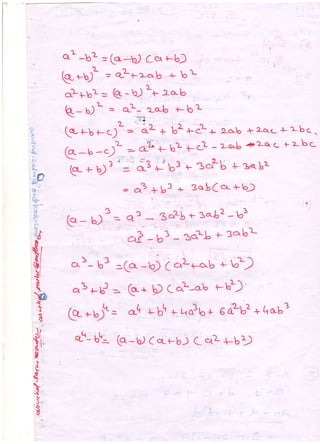 a² - b² = (a-b) (a+b)
(a+b)² = a² + 2ab + b²
a² + b² = (a-b)² + 2ab
(a-b)² = a² - 2ab + b²
(a+b+c)² = a² + b² + c² + 2ab + 2ac + 2bc.
(a-b-c)² = a² + b² + c² - 2ab - 2ac + 2bc
(a+b)³ = a³ + b³ + 3a²b + 3ab²
= a³ + b³ + 3ab(a+b)
(a-b)³ = a³ - 3a²b + 3ab² - b³
a³ - b³ - 3a²b + 3ab²
a³ - b³ = (a-b) (a² + ab + b²)
a³ + b³ = (a+b) (a² - ab + b²)
(a+b)⁴ = a⁴ + b⁴ + 4a³b + 6a²b² + 4ab³
a⁴ - b⁴ = (a-b) (a+b) (a² + b²)